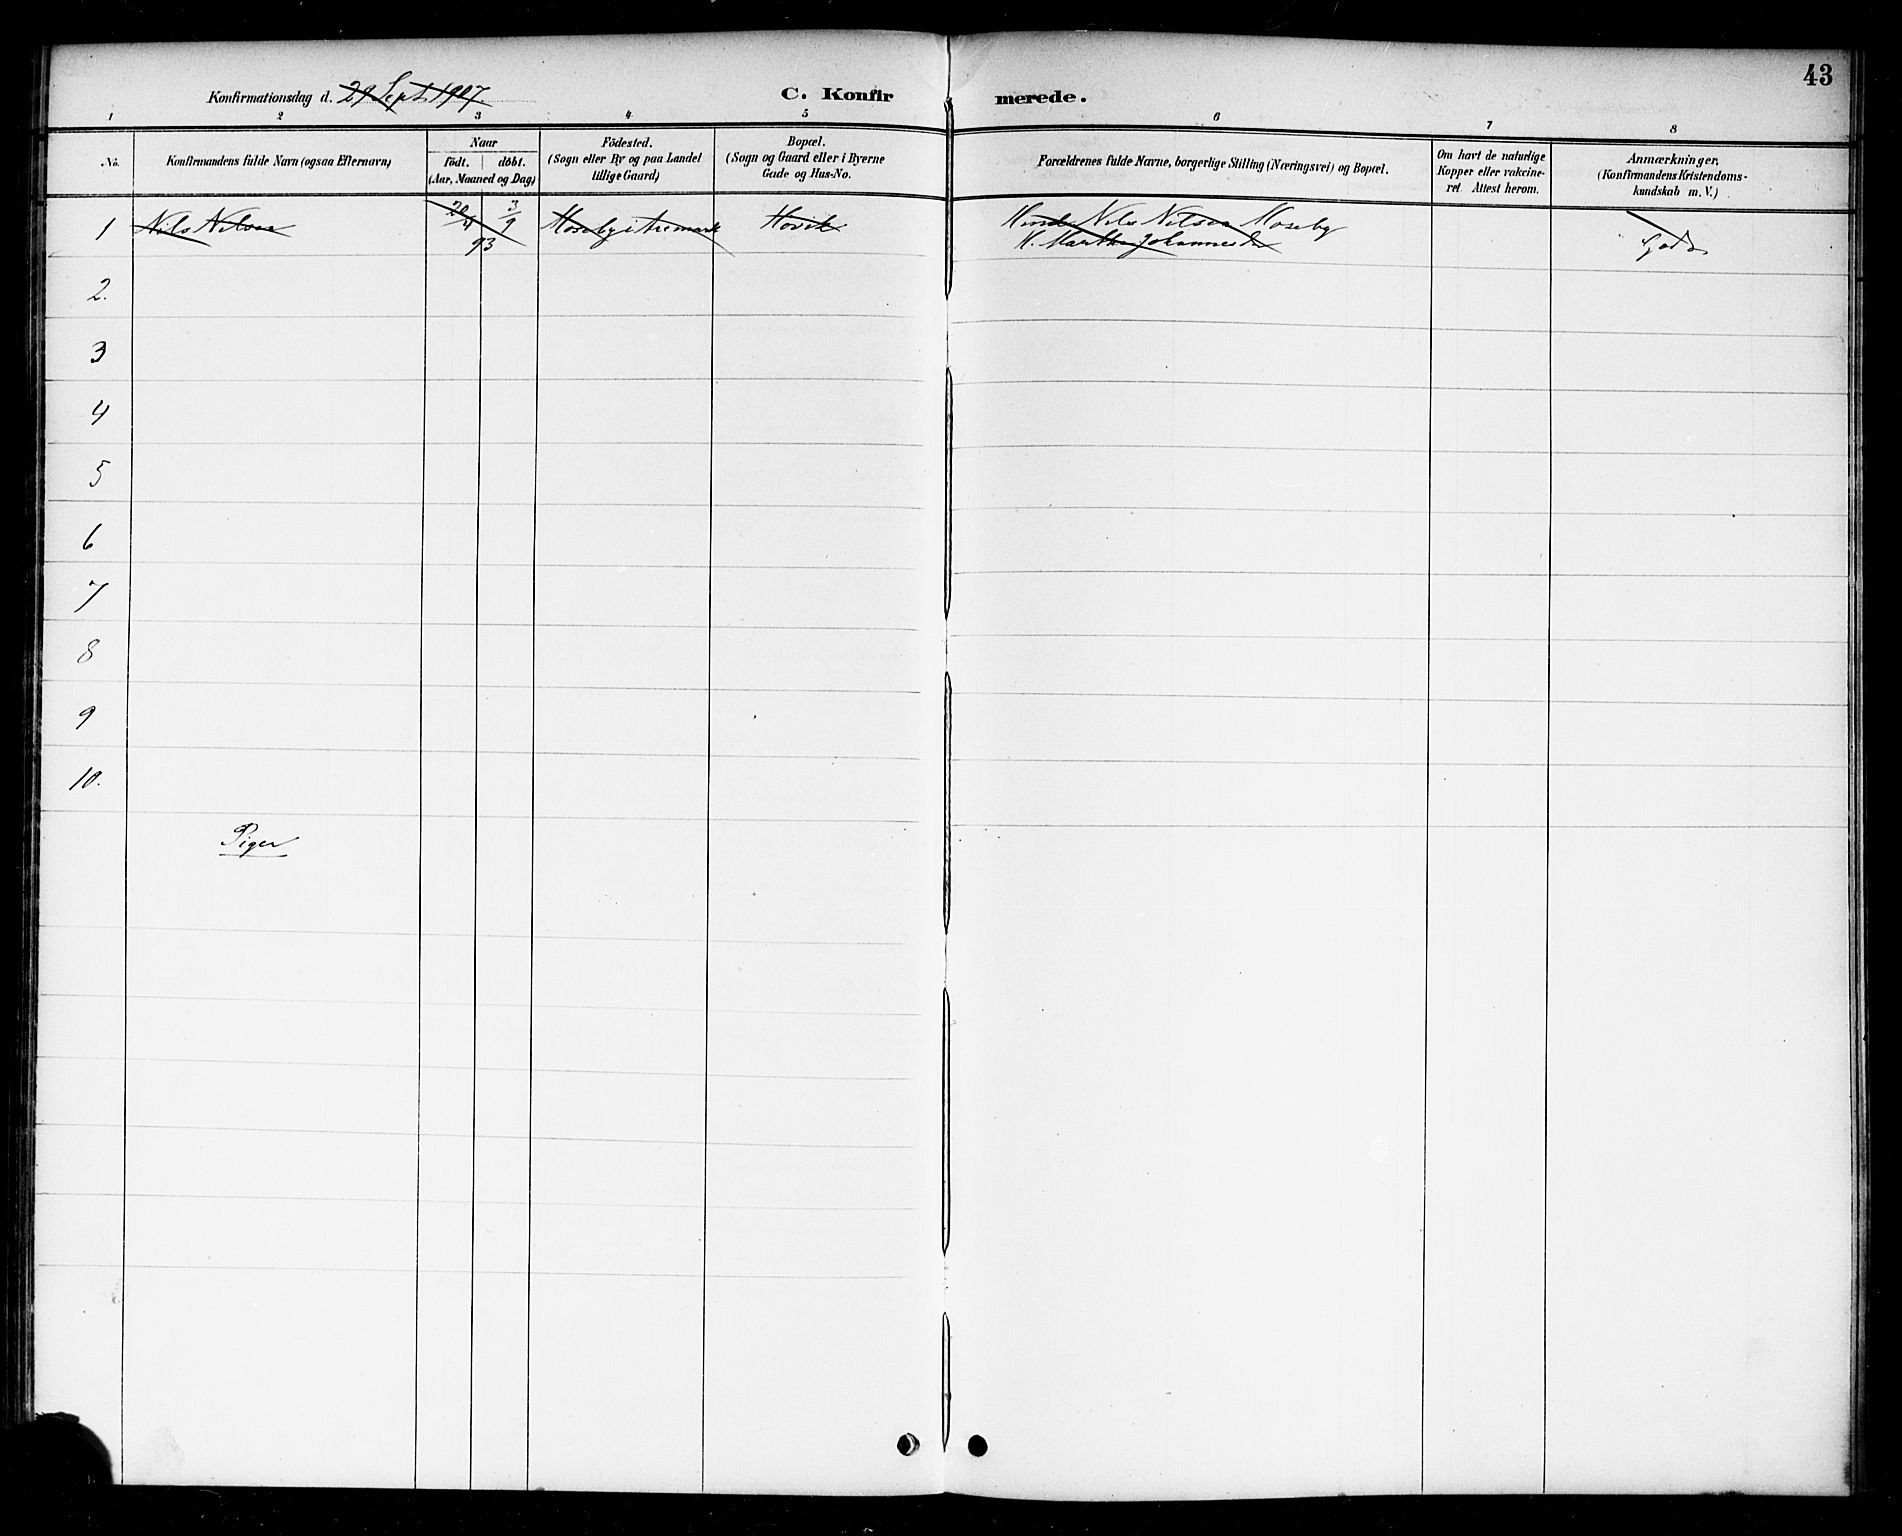 43
Konfirmationsdag d. 29 Sept. 1907
C. Konfirmerede.
1 2 3 4 5 6 7 8
No.
Konfirmandens fulde Navn (ogsaa Efternavn)
Naar
født. døbt.
(Aar, Maaned og Dag)
Födested.
(Sogn eller By og paa Landet
tillige Gaard)
Bopæl.
(Sogn og Gaard eller i Byerne
Gade og Hus-No.
Forældrenes fulde Navne, borgerlige Stilling (Næringsvei) og Bopæl.
Om havt de naturlige
Kopper eller vakcine-
ret. Attest herom.
Anmærkninger,
(Konfirmandens Kristendoms-
kundskab m. V.)
1 Nils Nilsen 3/9 Moseby i Aremark Hovik Nils Nilsen Moseby
93 H. Martha Johannesd. Godt
2.
3
4
5
6
7
8
9
10.
Piger